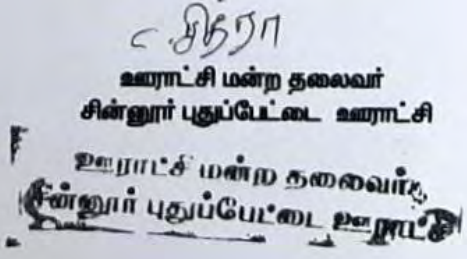 C. சித்ரா
ஊராட்சி மன்ற தலைவர்
சின்னூர் புதுப்பேட்டை ஊராட்சி
ஊராட்சி மன்ற தலைவர்
சின்னூர் புதுப்பேட்டை ஊராட்சி